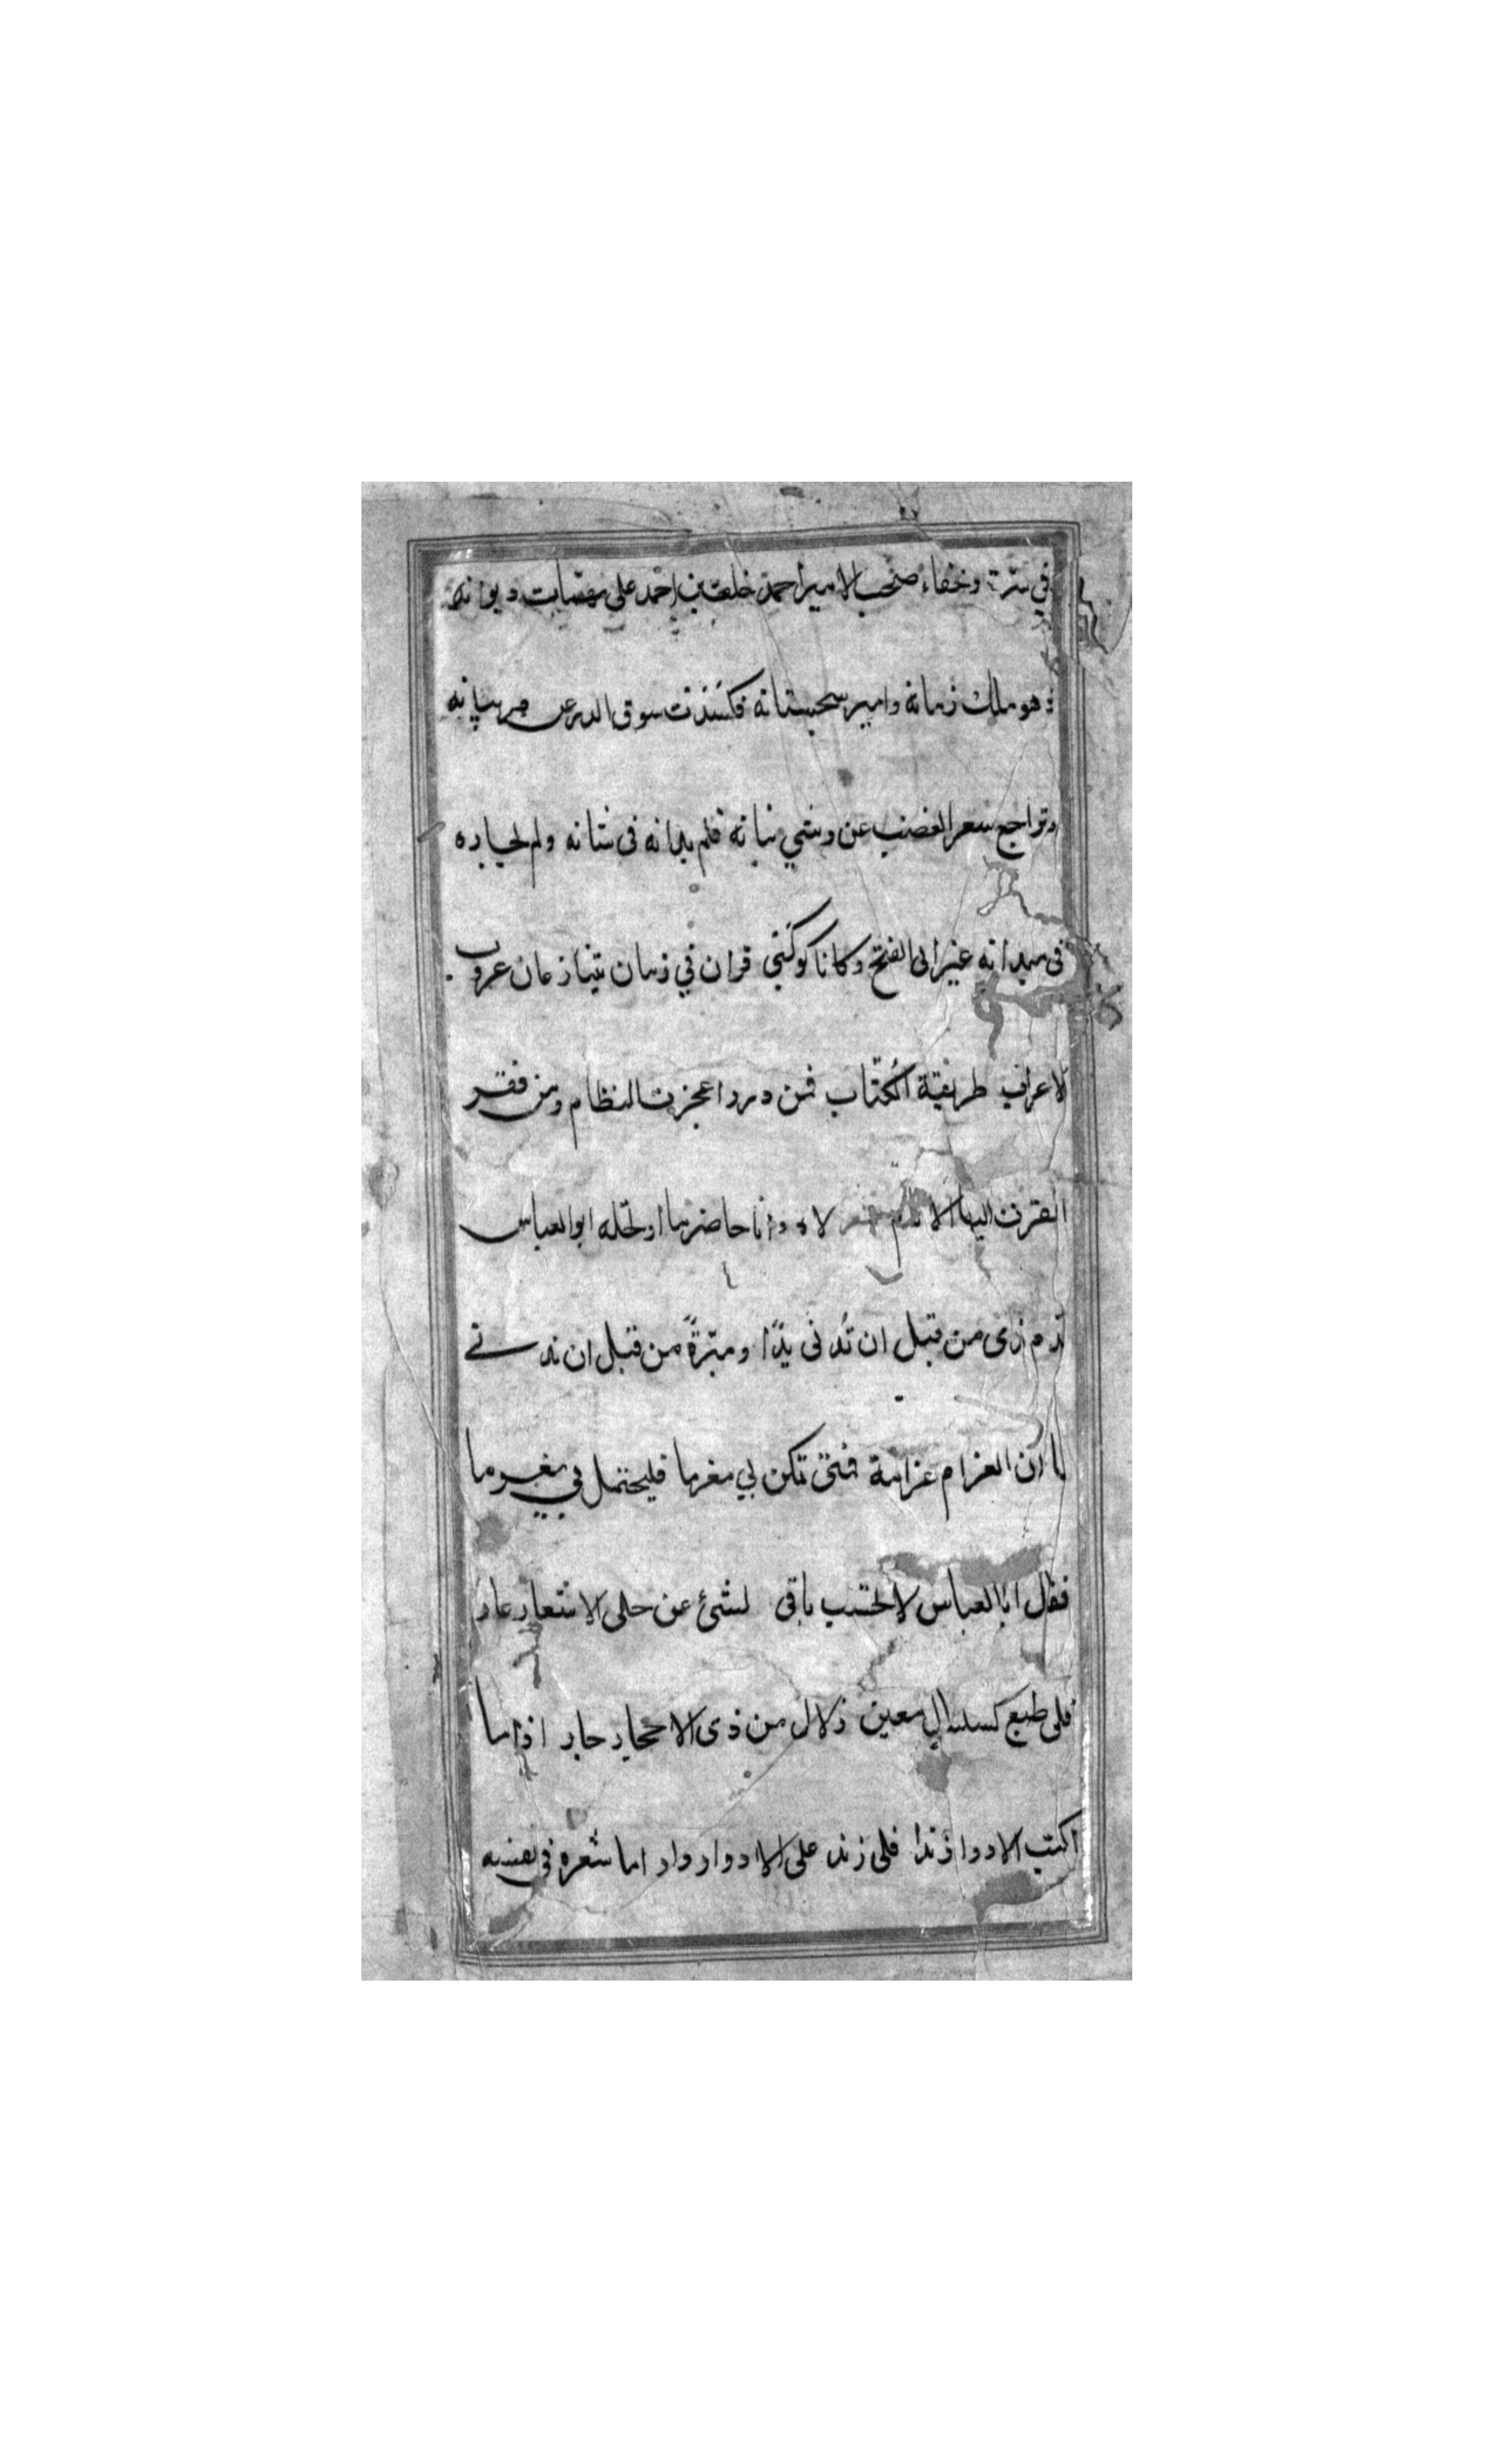 في سترة وخفاء صحب الامير احمد خلف بن احمد على مهمات ديوانه
وهو ملك زمانه وامير سجستانه فكسدت سوق الدر عن جريبانه
وتراجع سعر العضب عن وشي نباته فلم يدانه في شانه ولم يجاره
في ميدانه غير ابي الفتح وكانا كوكبي قران في زمان يتنازعان عروب
الاعراب طريقة الكتاب فمن درر اعجزت النظام ومن فقر
افقرت اليها الانام لاه وانا حاضر ما ارتجله ابو العباس
من قبل ان تدني يدًا ومبرةً من قبل ان
ان الغرام غرامة فمتى تكن بي مغرما فليحتمل بي مغرما
فقال ابا العباس لا تحسب باني لشئ عن حلى الاشعار عار
فلى طبع كسلسال معين زلال من ذى الاحجار جار اذا ما
اكبت الادوار زندا فلى زند على الادوار وار اما شعره في نفسه